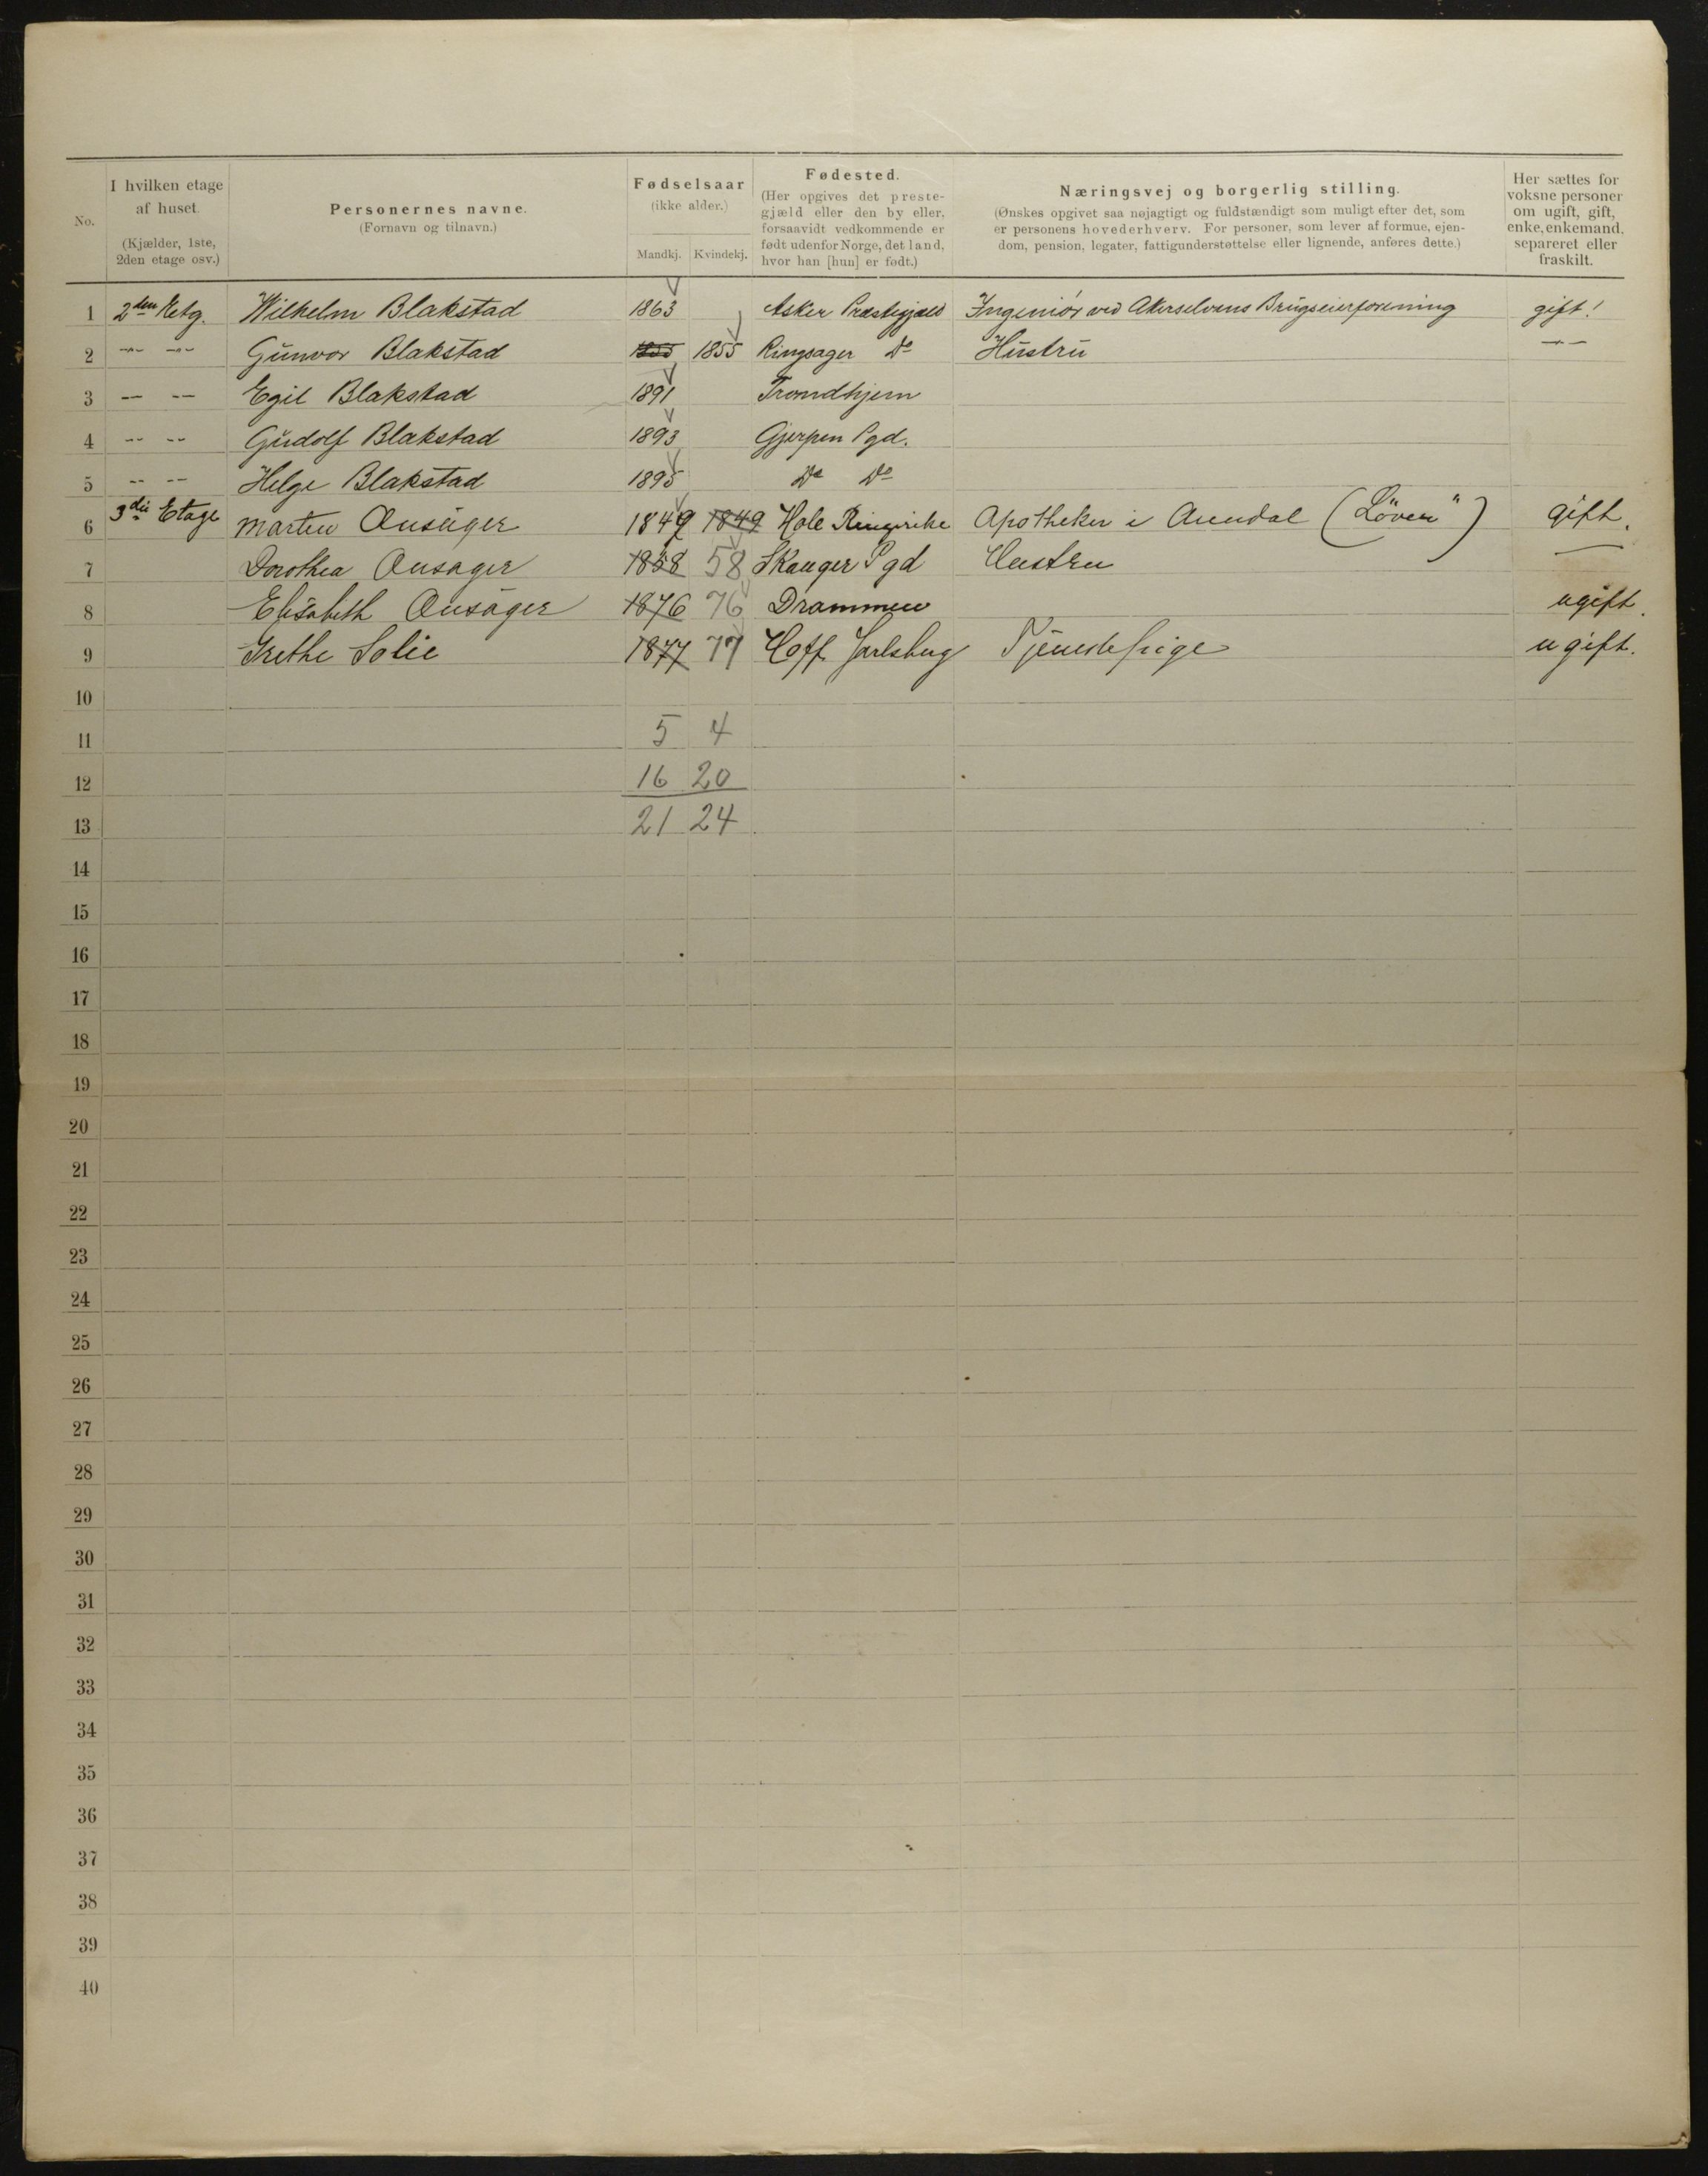 I hvilken etage af huset. (Kjælder, 1ste, 2den etage osv.)
No.
Personernes navne. (Fornavn og tilnavn.)
Fødselsaar (ikke alder.) Mandkj. Kvindekj.
Fødested. (Her opgives det prestegjæld eller den by eller, forsaavidt vedkommende er født udenfor Norge, det land, hvor han [hun] er født.)
Næringsvej og borgerlig stilling. (Ønskes opgivet saa nøjagtigt og fuldstændigt som muligt efter det, som er personens hovederhverv. For personer, som lever af formue, ejendom, pension, legater, fattigunderstøttelse eller lignende, anføres dette.)
Her sættes for voksne personer om ugift, gift, enke, enkemand, separeret eller fraskilt.
1 2den Etg. Wilhelm Blakstad 1863 Asker Præstegjæld Ingeniør ved Akerselvens Brugseierforening gift!
2 -"- -"- Gunvor Blakstad 1855 1855 Ringsager Do Hustru -"-
3 -- -- Egil Blakstad 1891 Trondhjem
4 -- -- Gudolf Blakstad 1893 Gjerpen Pgd.
5 -- -- Helge Blakstad 1895 Do Do
6 3die Etage Marten Ansäger 1849 1849 Hole Ringerike Apotheker i Arendal (Löven") gift.
7 Dorothea Ansager 1858 58 Skauger Pgd Hustru —
8 Elisabeth Ansäger 1876 76 Drammen ugift.
9 Grethe Solie 1877 77 Hoff Jarlsberg Tjenestepige ugift.
10
11 5 4
12 16 20
13 21 24
14
15
16
17
18
19
20
21
22
23
24
25
26
27
28
29
30
31
32
33
34
35
36
37
38
39
40